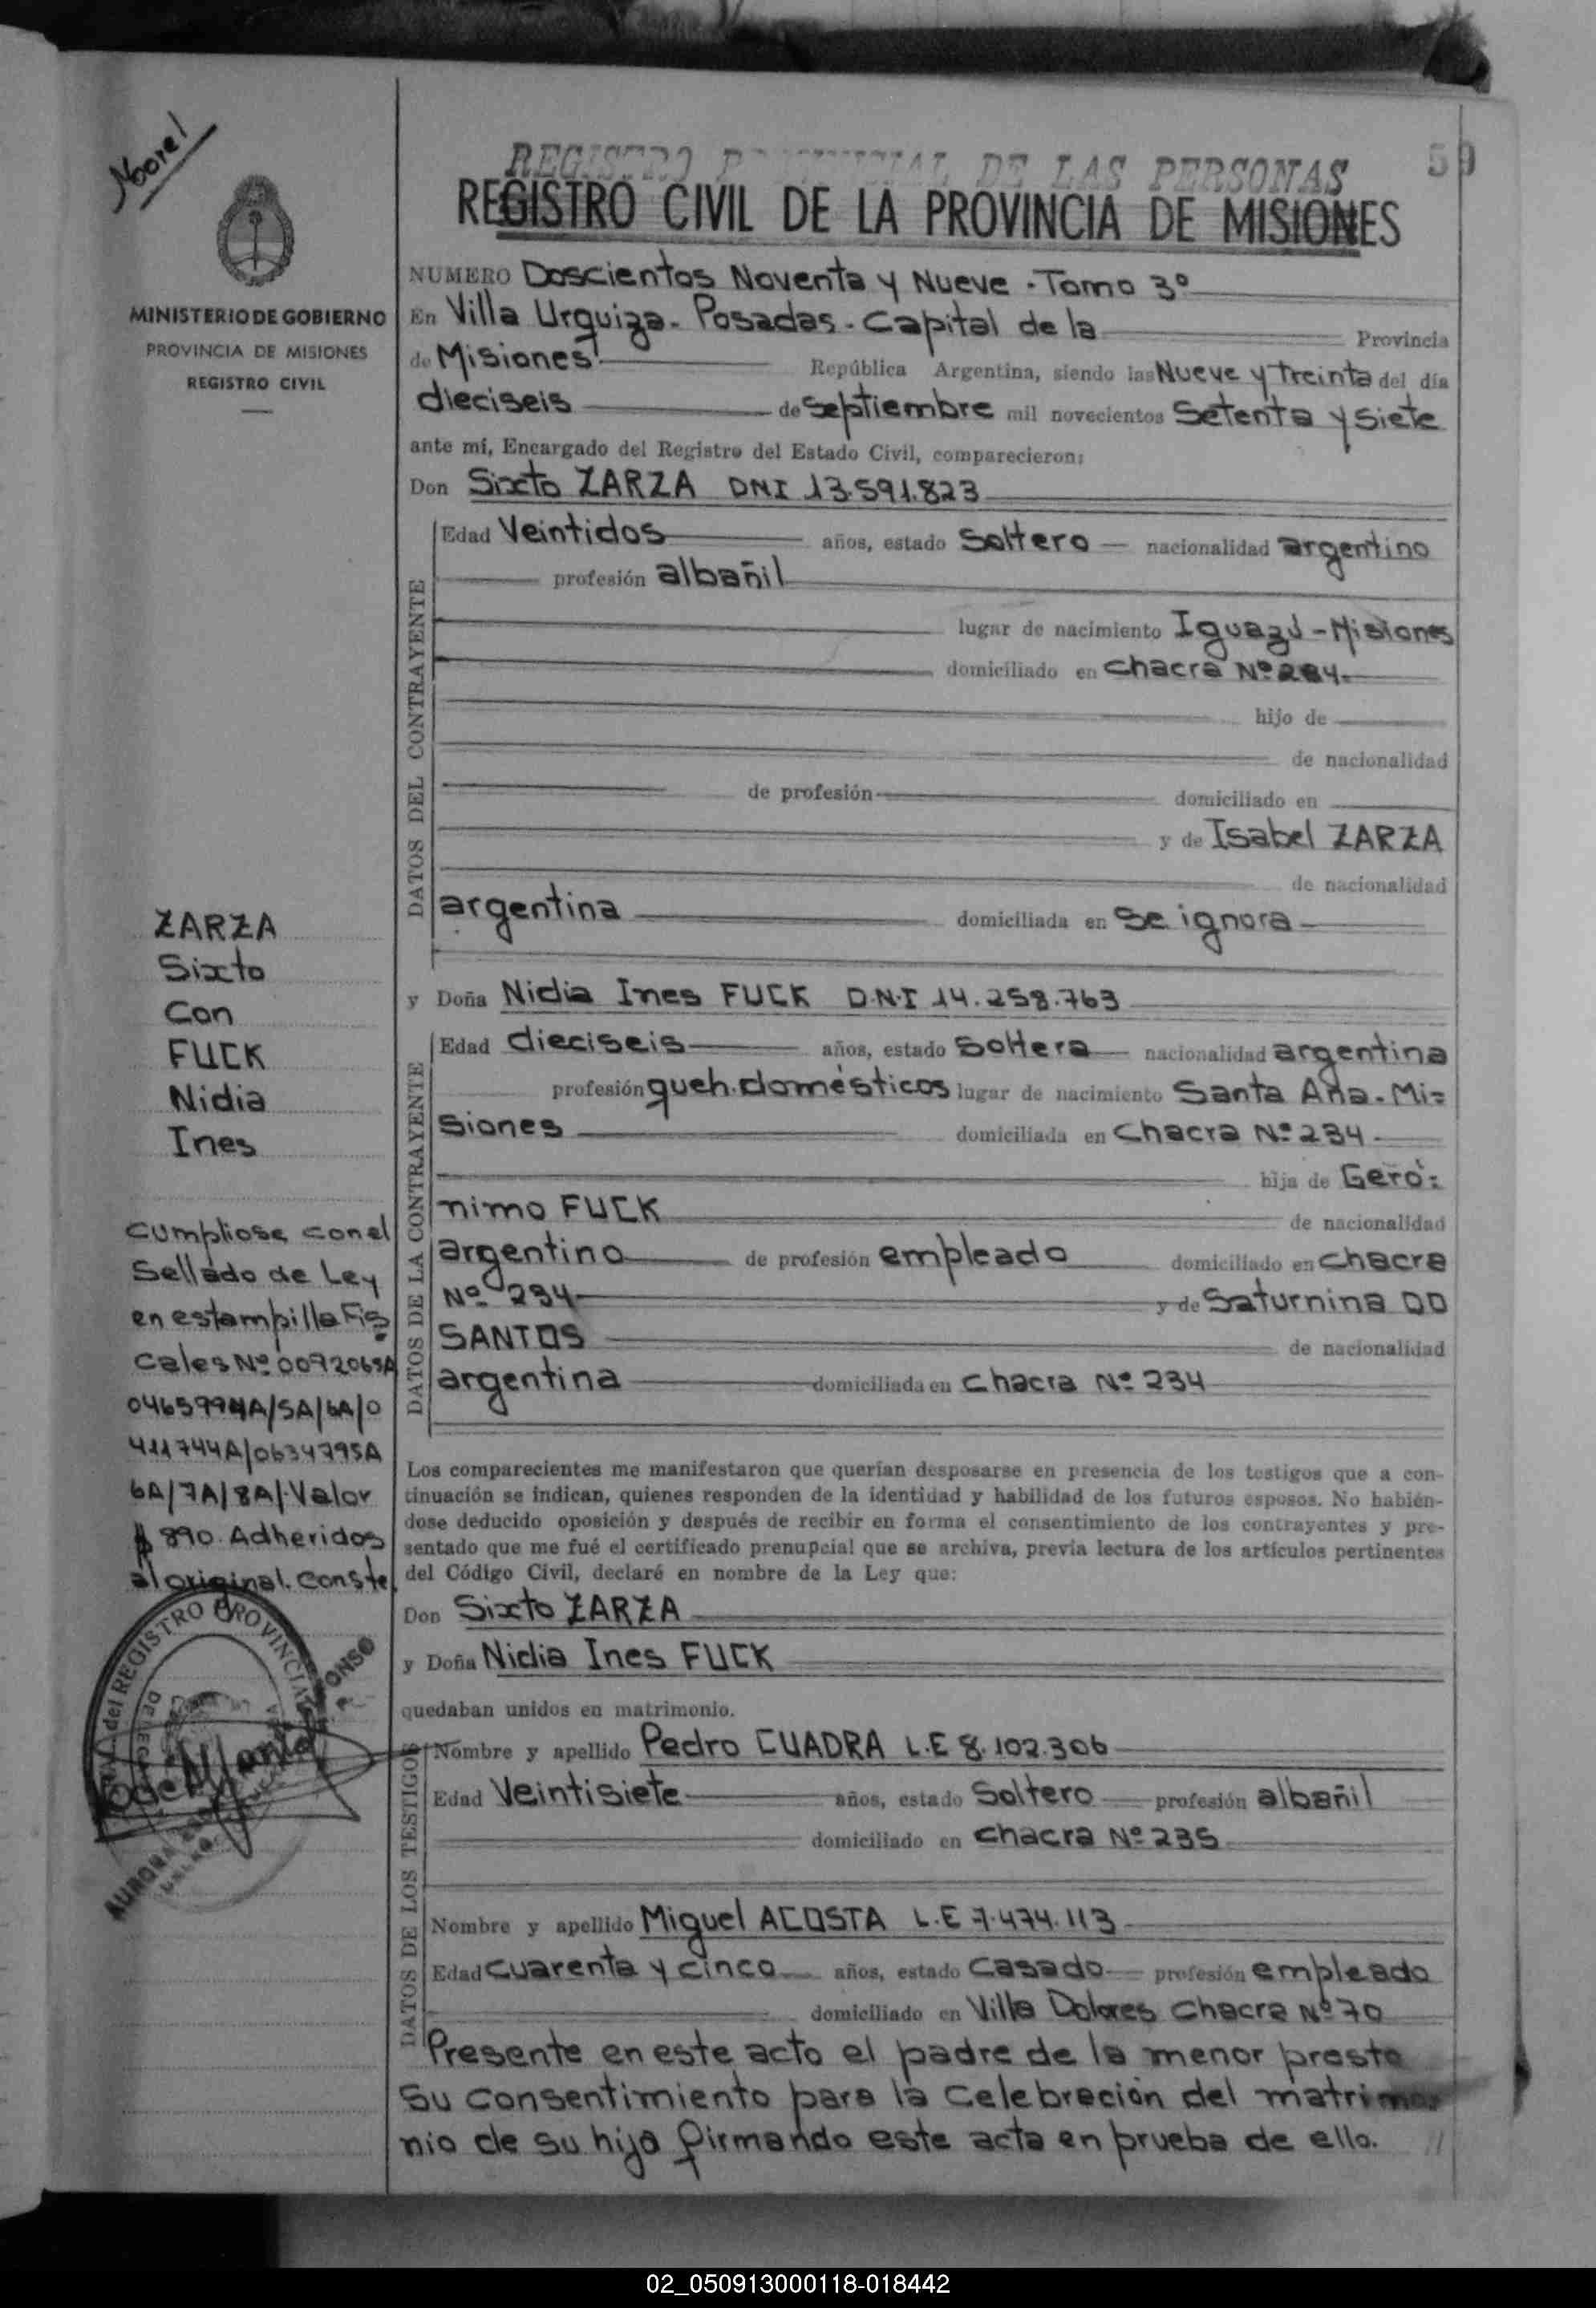 59
REGISTRO PROVINCIAL DE LAS PERSONAS
REGISTRO CIVIL DE LA PROVINCIA DE MISIONES
MINISTERIO DE GOBIERNO
PROVINCIA DE MISIONES
REGISTRO CIVIL
NUMERO Doscientos Noventa y Nueve - Tomo 3º
En Villa Urquiza - Posadas - Capital de la Provincia
de Misiones República Argentina, siendo las Nueve y treinta del día
dieciseis de Septiembre mil novecientos Setenta y Siete
ante mí, Encargado del Registro del Estado Civil, comparecieron:
Don Sixto ZARZA DNI 13.591.823
DATOS DEL CONTRAYENTE
Edad Veintidos años, estado Soltero nacionalidad argentino
profesión albañil
lugar de nacimiento Iguazú - Misiones
domiciliado en Chacra Nº
hijo de
de nacionalidad
de profesión domiciliado en
y de Isabel ZARZA
de nacionalidad
argentina domiciliada en Se ignora
y Doña Nidia Ines FUCK D.N.I 14.258.763
DATOS DE LA CONTRAYENTE
Edad dieciseis años, estado Soltera nacionalidad argentina
profesión queh. domésticos lugar de nacimiento Santa Ana - Mi=
siones domiciliada en Chacra Nº 234
hija de Geró=
nimo FUCK de nacionalidad
argentino de profesión empleado domiciliado en Chacra
Nº 234 y de Saturnina DO
SANTOS de nacionalidad
argentina domiciliada en Chacra Nº 234
Los comparecientes me manifestaron que querían desposarse en presencia de los testigos que a con-
tinuación se indican, quienes responden de la identidad y habilidad de los futuros esposos. No habién-
dose deducido oposición y después de recibir en forma el consentimiento de los contrayentes y pre-
sentado que me fué el certificado prenupcial que se archiva, previa lectura de los artículos pertinentes
del Código Civil, declaré en nombre de la Ley que:
Don Sixto ZARZA
y Doña Nidia Ines FUCK
quedaban unidos en matrimonio.
DATOS DE LOS TESTIGOS
Nombre y apellido Pedro CUADRA L.E 8.102.306
Edad Veintisiete años, estado Soltero profesión albañil
domiciliado en Chacra Nº 235
Nombre y apellido Miguel ACOSTA L.E 7.474.113
Edad Cuarenta y cinco años, estado Casado profesión empleado
domiciliado en Villa Dolores Chacra Nº 70
Presente en este acto el padre de la menor presta
su consentimiento para la Celebración del matrimo
nio de su hija firmando este acta en prueba de ello.
ZARZA
Sixto
Con
FUCK
Nidia
Ines
Cumpliose con el
Sellado de Ley
en estampilla Fis
cales Nº 0092065A
0465994A/5A/6A/0
411744A/0634795A
6A/7A/8A/. Valor
$ 890. Adheridos
al original. Conste.
del REGISTRO PROVINCIAL
02_050913000118-018442